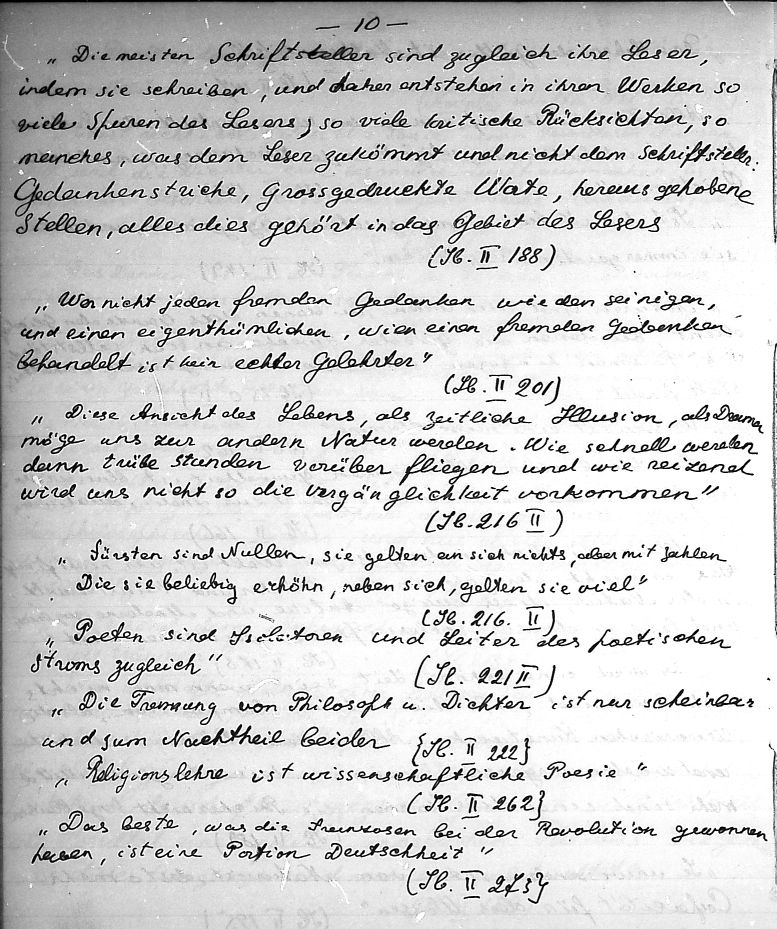 — 10 —
„ Die meisten Schriftsteller sind zugleich ihre Leser,
indem sie schreiben, und daher entstehen in ihren Werken so
viele Spuren des Lesers, so viele kritische Rücksichten, so
manches, was dem Leser zukömmt und nicht dem Schriftsteller:
Gedankenstriche, Grossgedruckte Wate, herausgehobene
Stellen, alles dies gehört in das Gebiet des Lesers
(Ib. II 188)
„ Wer nicht jeden fremden Gedanken wie den seinigen,
und einen eigenthümlichen, wie einen fremden Gedanken
behandelt ist kein echter Gelehrter"
(Ib. II 201)
„ Diese Ansicht des Lebens, als zeitliche Illusion, als Drama
möge uns zur andern Natur werden. Wie schnell werden
dann trübe Stunden vorüber fliegen und wie reizend
wird uns nicht so die Vergänglichkeit vorkommen"
(Ib. 216 II)
„ Fürsten sind Nullen, sie gelten an sich nichts, aber mit Zahlen
Die sie beliebig erhöhn, neben sich, gelten sie viel"
(Ib. 216. II)
„ Poeten sind Isolatoren und Leiter des poetischen
Stroms zugleich"
(Ib. 221 II)
„ Die Trennung von Philosoph u. Dichter ist nur scheinbar
und zum Nachtheil beider {Ib. II 222}
„ Religionslehre ist wissenschaftliche Poesie "
(Ib. II 262}
„ Das beste, was die Franzosen bei der Revolution gewonnen
haben, ist eine Portion Deutschheit "
(Ib. II 273}